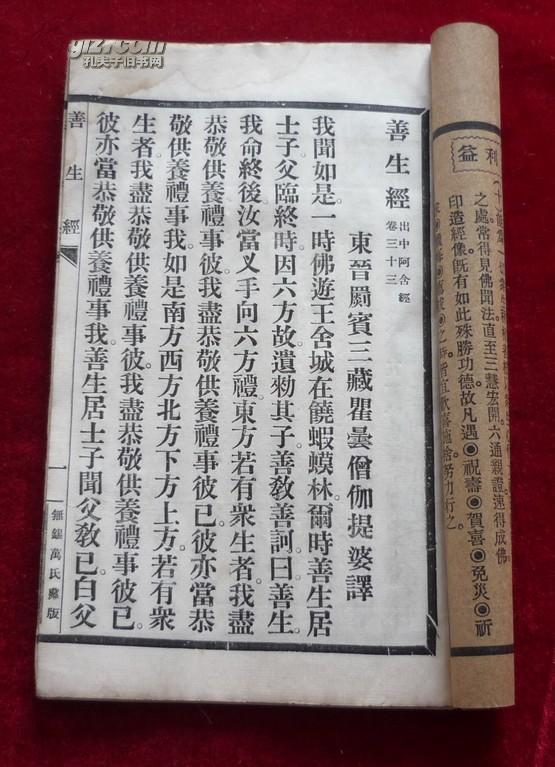 利益
之處常得見佛聞法。直至三慧宏開。六通親證。速得成佛。
印造經像。既有如此殊勝功德。故凡遇◉祝壽◉賀喜◉免災◉祈
善生經 出中阿含經卷三十三
東晉罽賓三藏瞿曇僧伽提婆譯
我聞如是。一時佛遊王舍城在饒蝦蟆林。爾時善生居
士子父臨終時。因六方故。遺勑其子。善教善訶。曰善生。
我命終後。汝當叉手向六方禮。東方若有衆生者。我盡
恭敬供養禮事彼。我盡恭敬供養禮事彼已。彼亦當恭
敬供養禮事我。如是南方西方北方下方上方。若有衆
生者。我盡恭敬供養禮事彼。我盡恭敬供養禮事彼已。
彼亦當恭敬供養禮事我。善生居士子聞父教已。白父
善生經
一
無錫萬氏藏版
孔夫子旧书网